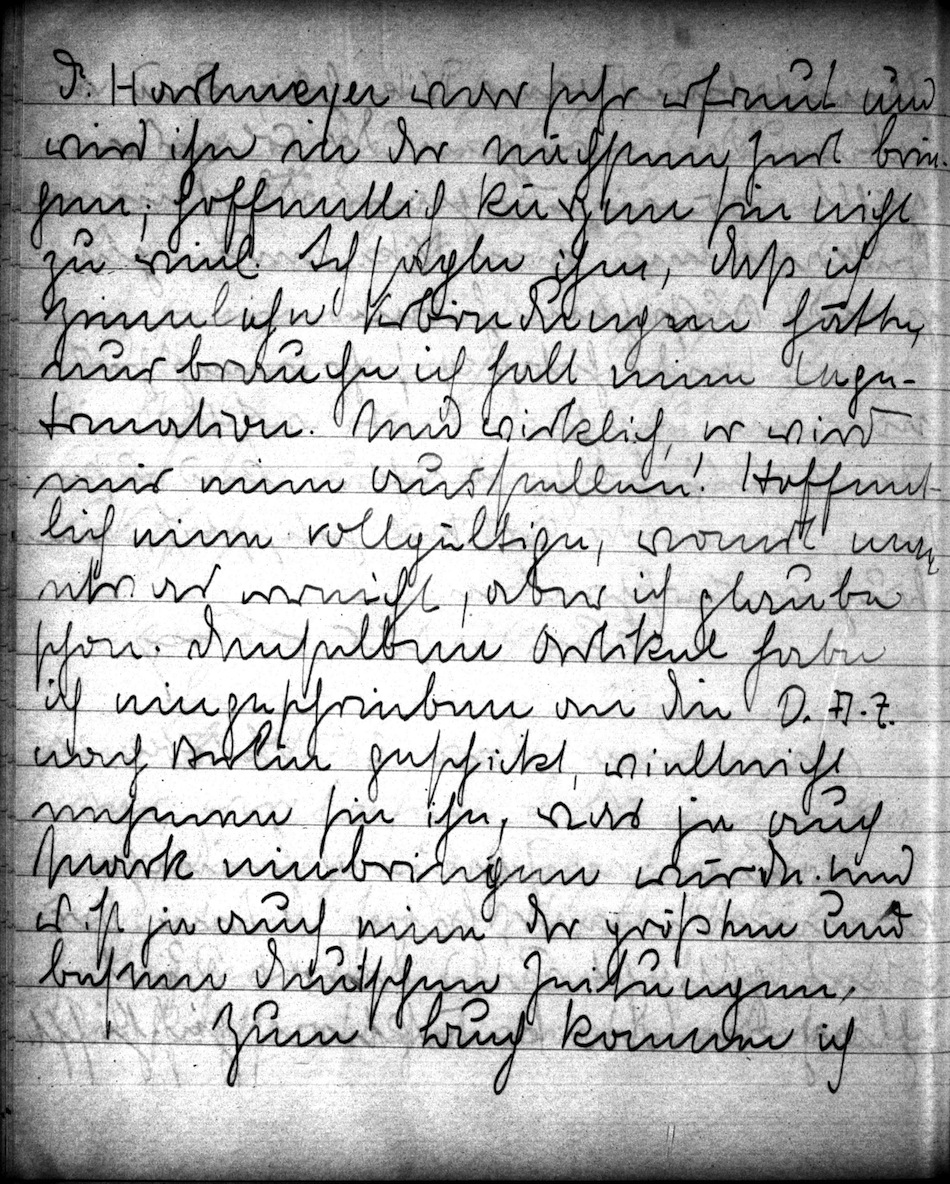 D. Hartmeyer war sehr erfreut und
wird ihn in der nächsten Zeit brin-
gen; hoffentlich kürzen sie nicht
zu viel. Ich sagte ihm, daß ich
ziemliche Verbindungen hätte,
nur brauche ich halt eine Legi-
timation. Und wirklich, er wird
mir eine ausstellen! Hoffent-
lich eine vollgültige, womit man
etwas erreicht, aber ich glaube
schon. Denselben Artikel habe
ich eingeschrieben an die D.A.Z.
nach Berlin geschickt, vielleicht
nehmen sie ihn, was ja auch
Mark einbringen würde. Und
es ist ja auch eine der größten und
besten deutschen Zeitungen.
Zum Buch komme ich